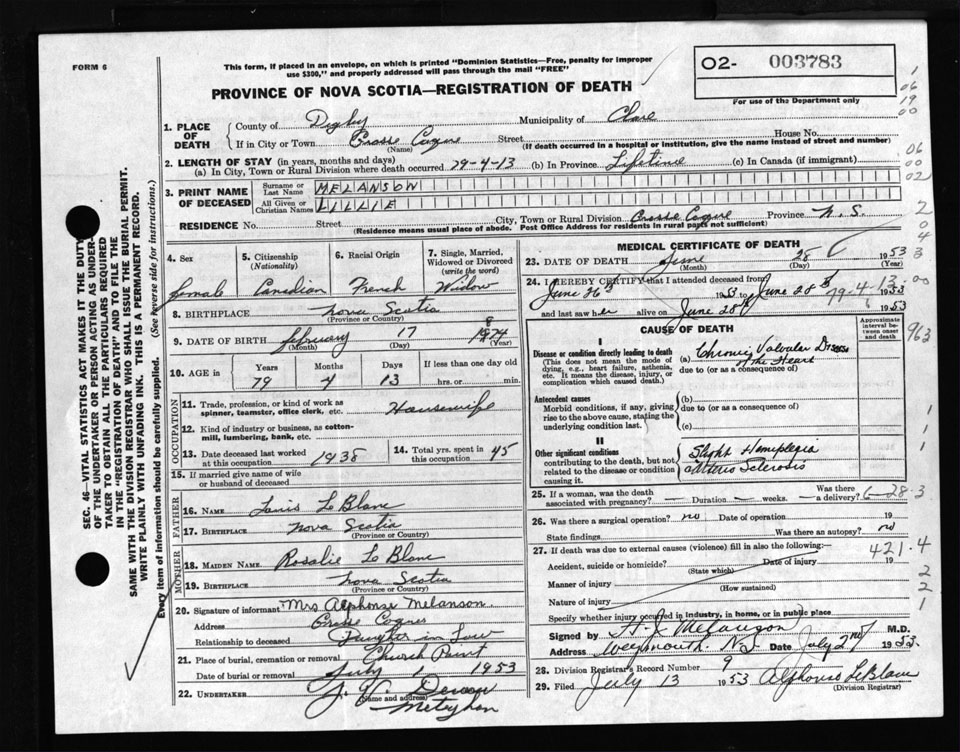 FORM 6
This form, if placed in an envelope, on which is printed "Dominion Statistics—Free, penalty for improper
use $300," and properly addressed will pass through the mail "FREE"
O2- 003783
For use of the Department only
PROVINCE OF NOVA SCOTIA—REGISTRATION OF DEATH
1. PLACE OF DEATH County of Digby Municipality of Clare
If in City or Town Grosse Coques Street House No.
(Name) (If death occurred in a hospital or institution, give the name instead of street and number)
2. LENGTH OF STAY (in years, months and days)
(a) In City, Town or Rural Division where death occurred 79-4-13 (b) In Province Lifetime (c) In Canada (if immigrant)
3. PRINT NAME OF DECEASED Surname or Last Name MELANSON
All Given or Christian Names LILLIE
RESIDENCE No. Street City, Town or Rural Division Grosse Coques Province N.S.
(Residence means usual place of abode. Post Office Address for residents in rural parts not sufficient)
4. Sex female
5. Citizenship (Nationality) Canadian
6. Racial Origin French
7. Single, Married, Widowed or Divorced (write the word) Widow
8. BIRTHPLACE Nova Scotia
(Province or Country)
9. DATE OF BIRTH February 17 1874
(Month) (Day) (Year)
10. AGE in Years 79 Months 4 Days 13 If less than one day old hrs. or min.
OCCUPATION
11. Trade, profession, or kind of work as spinner, teamster, office clerk, etc. Housewife
12. Kind of industry or business, as cotton-mill, lumbering, bank, etc.
13. Date deceased last worked at this occupation 1938
14. Total yrs. spent in this occupation 45
15. If married give name of wife or husband of deceased
FATHER
16. NAME Louis Le Blanc
17. BIRTHPLACE Nova Scotia
(Province or Country)
MOTHER
18. MAIDEN NAME Rosalie Le Blanc
19. BIRTHPLACE Nova Scotia
(Province or Country)
20. Signature of informant Mrs Alphonse Melanson
Address Grosse Coques
Relationship to deceased Daughter in Law
21. Place of burial, cremation or removal Church Point
Date of burial or removal July 1 1953
22. UNDERTAKER
(Name and address)
Meteghan
MEDICAL CERTIFICATE OF DEATH
23. DATE OF DEATH June 28 1953
(Month) (Day) (Year)
24. I HEREBY CERTIFY that I attended deceased from
June 26th 1953 to June 28th 1953
79-4-13
and last saw her alive on June 28 1953
CAUSE OF DEATH
Approximate interval between onset and death
I
Disease or condition directly leading to death
(This does not mean the mode of dying, e.g., heart failure, asthenia, etc. It means the disease, injury, or complication which caused death.)
(a) Chronic Valvular Disease of the Heart
due to (or as a consequence of)
Antecedent causes
Morbid conditions, if any, giving rise to the above cause, stating the underlying condition last.
(b)
due to (or as a consequence of)
(c)
II
Other significant conditions
contributing to the death, but not related to the disease or condition causing it.
Slight Hemiplegia
arterio Sclerosis
25. If a woman, was the death associated with pregnancy? — Duration — weeks. Was there a delivery? 6-28-3
26. Was there a surgical operation? no Date of operation 19
State findings Was there an autopsy? no
27. If death was due to external causes (violence) fill in also the following:- 421.4
Accident, suicide or homicide? Date of injury 19
(State which)
Manner of injury
(How sustained)
Nature of injury
Specify whether injury occurred in industry, in home, or in public place
Signed by M.D.
Address Weymouth N.S. Date July 2nd 1953
28. Division Registrar's Record Number 9
29. Filed July 13 1953 Alphonse LeBlanc
(Division Registrar)
SEC. 46—VITAL STATISTICS ACT MAKES IT THE DUTY
OF THE UNDERTAKER OR PERSON ACTING AS UNDER-
TAKER TO OBTAIN ALL THE PARTICULARS REQUIRED
IN THE "REGISTRATION OF DEATH" AND TO FILE THE
SAME WITH THE DIVISION REGISTRAR WHO SHALL ISSUE THE BURIAL PERMIT.
WRITE PLAINLY WITH UNFADING INK. THIS IS A PERMANENT RECORD.
Every item of information should be carefully supplied. (See reverse side for instructions.)
1
06
19
00
06
00
02
2
0
4
3
00
963
1
1
1
2
2
1